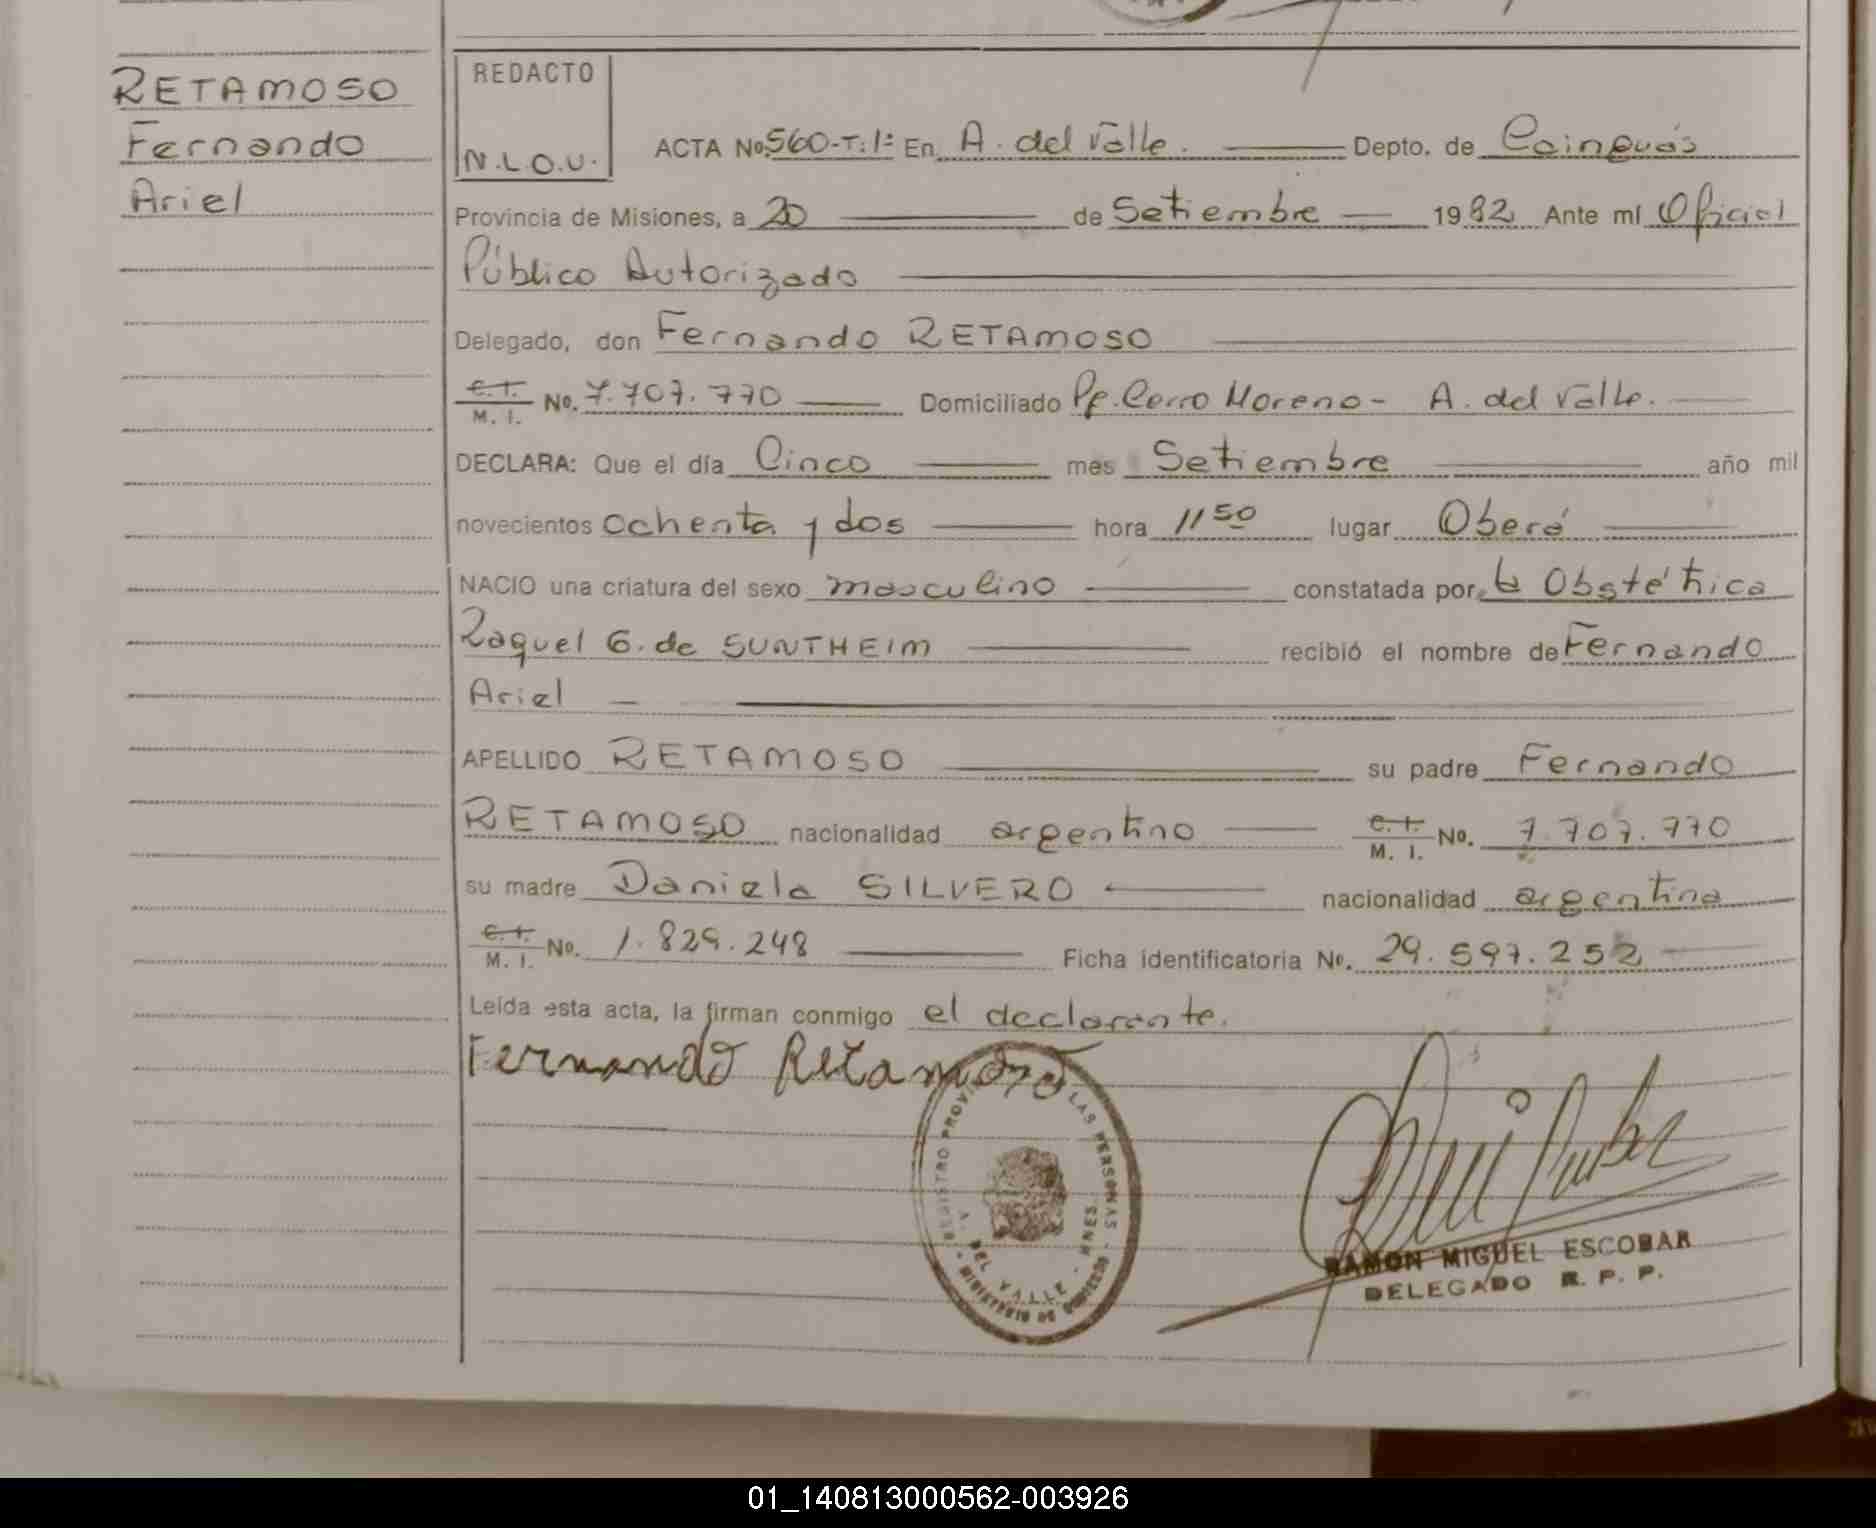 RETAMOSO
Fernando
Ariel
REDACTO
N.L.O.U.
ACTA No. 560-T:1º En A. del Valle. Depto. de Cainguás
Provincia de Misiones, a 20 de Setiembre 1982 Ante mí Oficial
Público Autorizado
Delegado, don Fernando RETAMOSO
C.I. M. I. No. 7.707.770 Domiciliado Pje. Cerro Moreno - A. del Valle.
DECLARA: Que el día Cinco mes Setiembre año mil
novecientos ochenta y dos hora 11 50 lugar Oberá
NACIO una criatura del sexo masculino constatada por la Obstétrica
Raquel G. de SUNTHEIM recibió el nombre de Fernando
Ariel
APELLIDO RETAMOSO su padre Fernando
RETAMOSO nacionalidad argentino C.I. M. I. No. 7.707.770
su madre Daniela SILVERO nacionalidad argentina
C.I. M. I. No. 1.829.248 Ficha identificatoria No. 29.597.252
Leída esta acta, la firman conmigo el declarante.
Fernando Retamoso
REGISTRO PROVI LAS PERSONAS
A. DEL VALLE - MNES.
RAMON MIGUEL ESCOBAR
DELEGADO R. P. P.
01_140813000562-003926